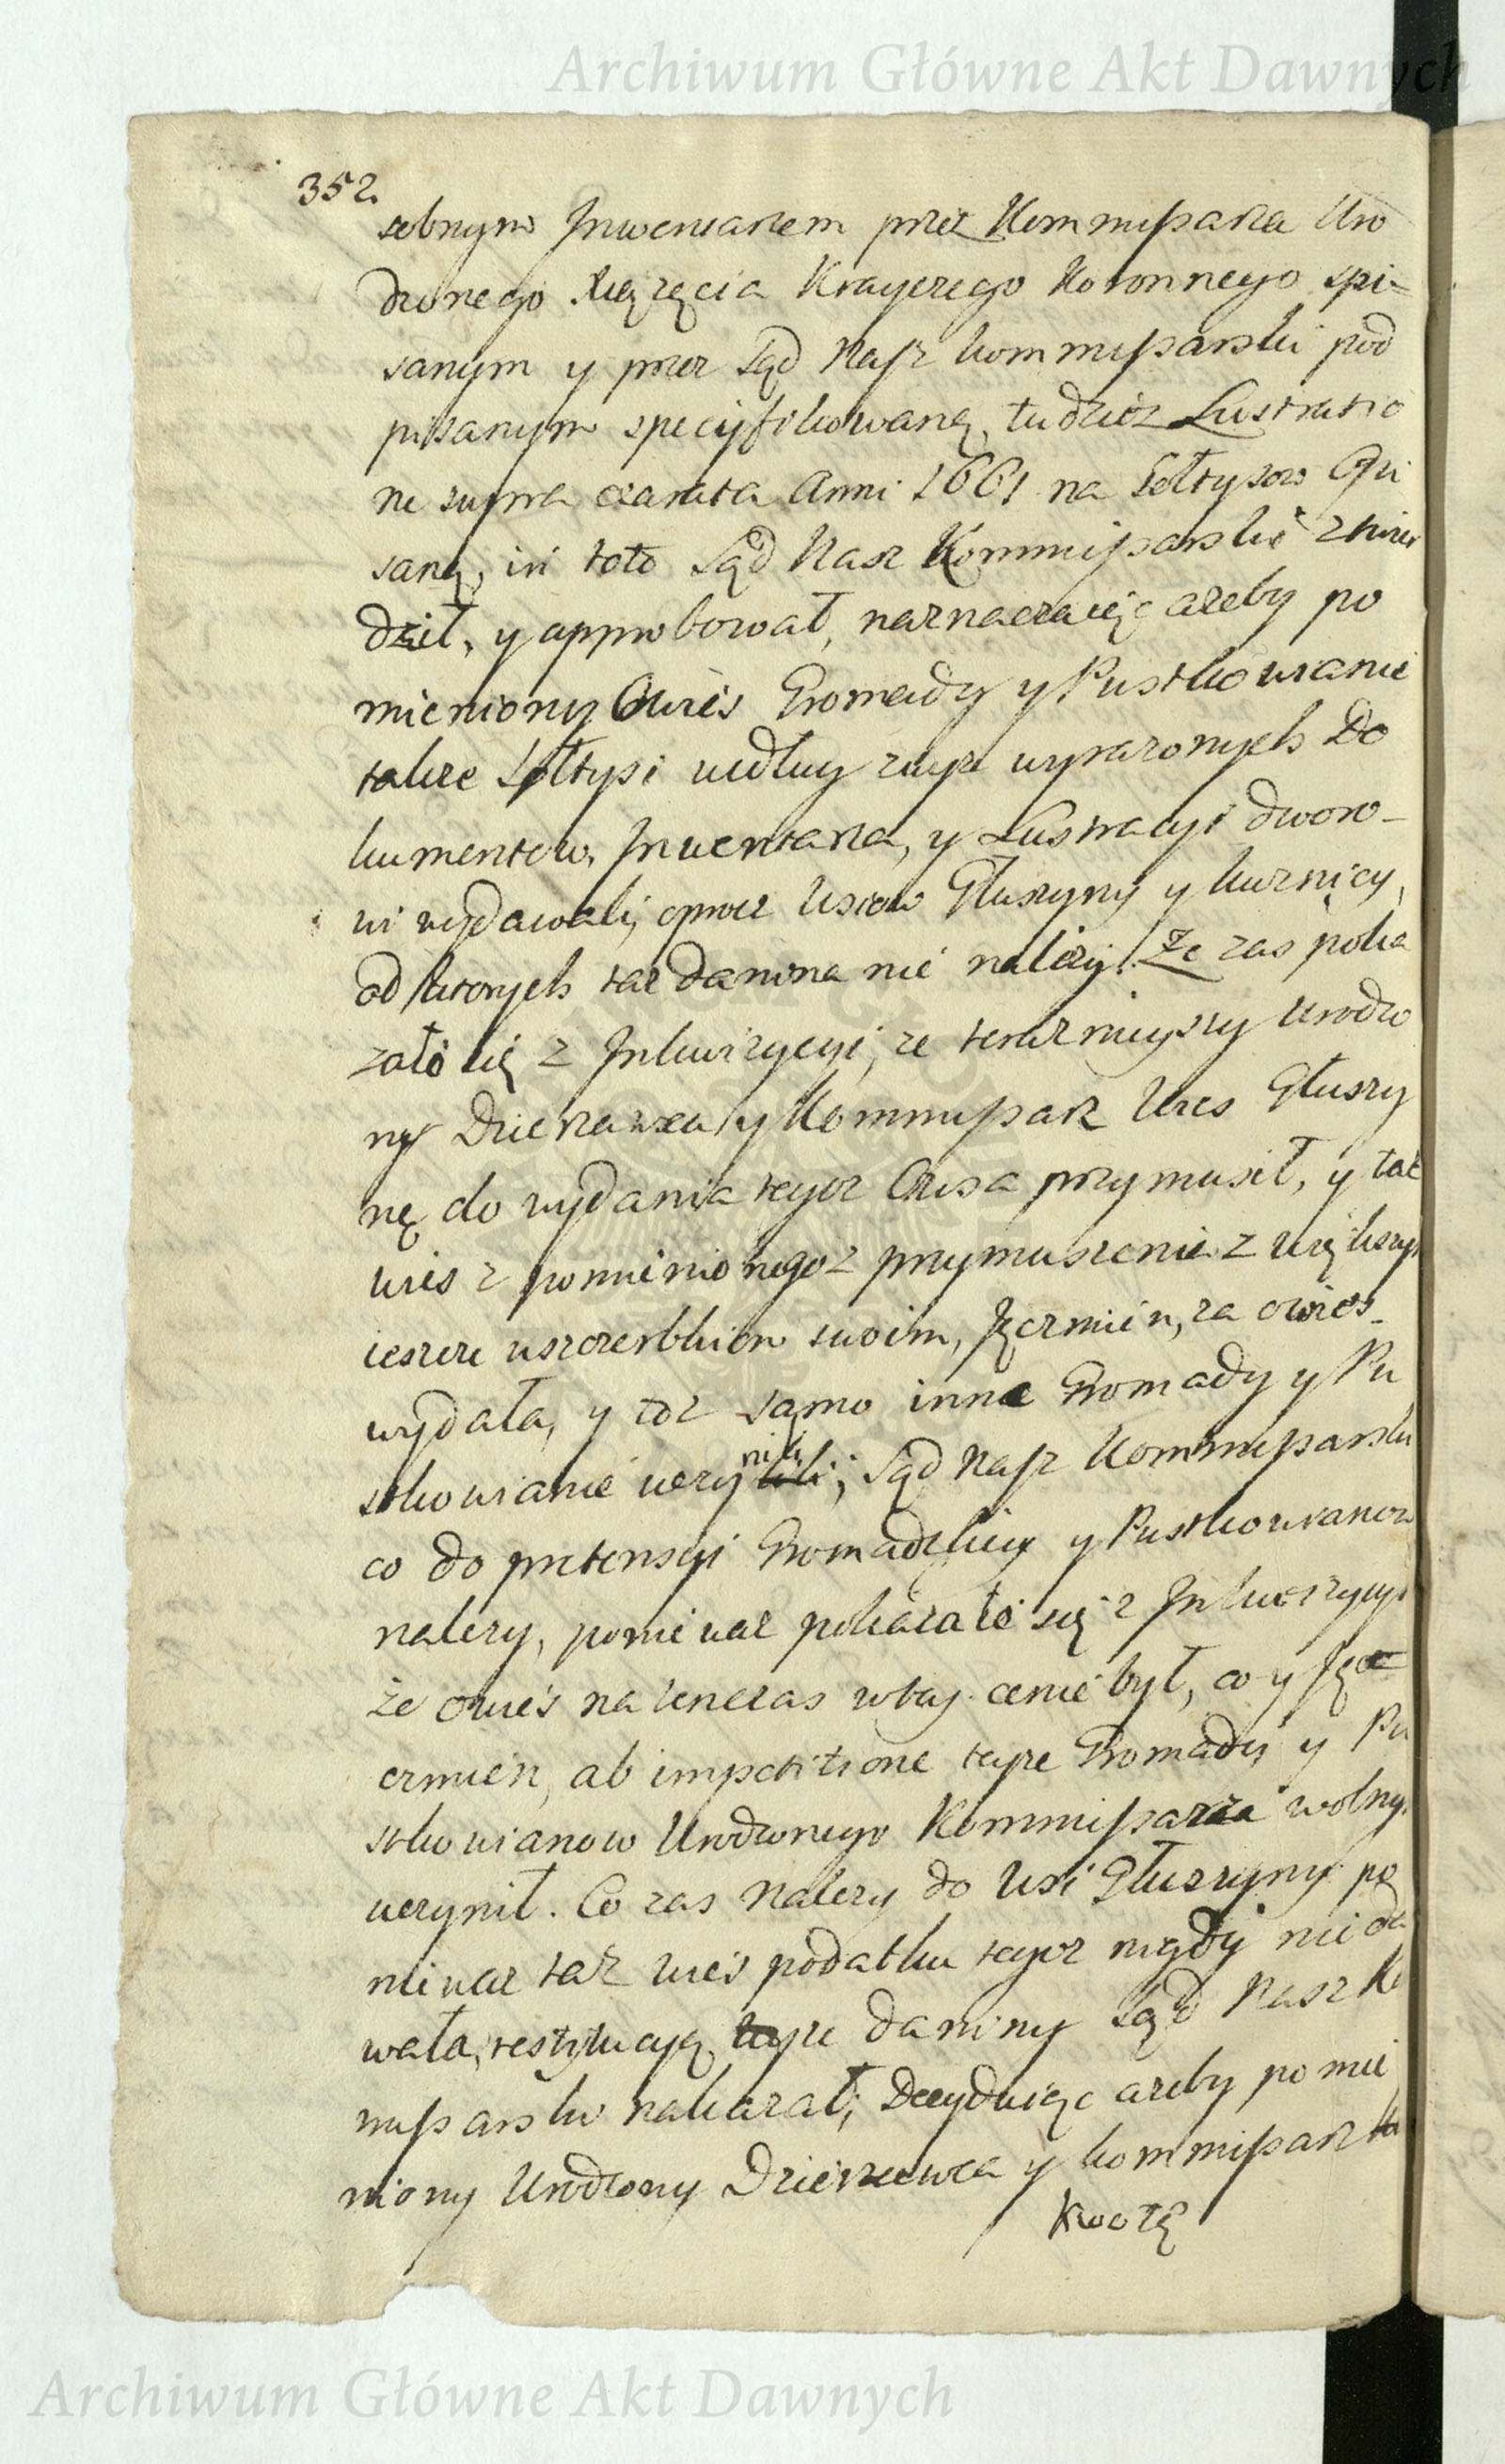 Archiwum Główne Akt Dawnych
352
sobnym Inwentarzem przez Kommissarza Uro
dzonego Xiężęcia Krayczego Koronnego spi-
sanym y przez Sąd Nasz kommissarski pod
pisanym specyfikowaną, tudzież Lustratio
ne supra exarata Anni 1661 na Sołtysow Opi
saną, in toto Sąd Nasz Kommissarski ztwier
dził, y approbował, naznaczaiąc ażeby po
mieniony Owies Gromady y Pustkowianie
takze Sołtysi według zwyż wyrazonych Do
kumentow, Inwentarza, y Lustracyi dworo-
wi wydawali, oprocz Wsiow Głuszyny y kuznicy,
od ktorych taz danina nie należy. Ze zas poka
zało się z Inkwizycyi, ze teraznieyszy Urodzo
ny Dzierzawca y Kommissarz Wies Głuszy
nę do wydania tegoz Owsa przymusił, y taż
wies z pomienionegoz przymuszenia z większym
ieszcze uszczerbkiem swoim, Jęczmien, za owies
wydała, y toz samo inne Gromady y Pu
stkowianie uczynili; Sąd Nasz Kommissarski
co do pretensyi Gromadzkiey y Pustkowianow
nalezy, poniewaz pokazało się z Inkwizycyi
że owies natenczas w tey cenie był, co y Ję
czmien, ab impetitione teyze Gromady y Pu
stkowianow Urodzonego Kommissarza wolnym
uczynił. Co zas nalezy do Wsi Głuszyny po
niewaz taż wieś podatku tegoz nigdy nieda
wała, restytucyą teyze daniny Sąd Nasz Ko
missarski nakazał, Decyduiąc azeby pomie
niony Urodzony Dzierzawca y kommissarz
Kwotę
Archiwum Główne Akt Dawnych